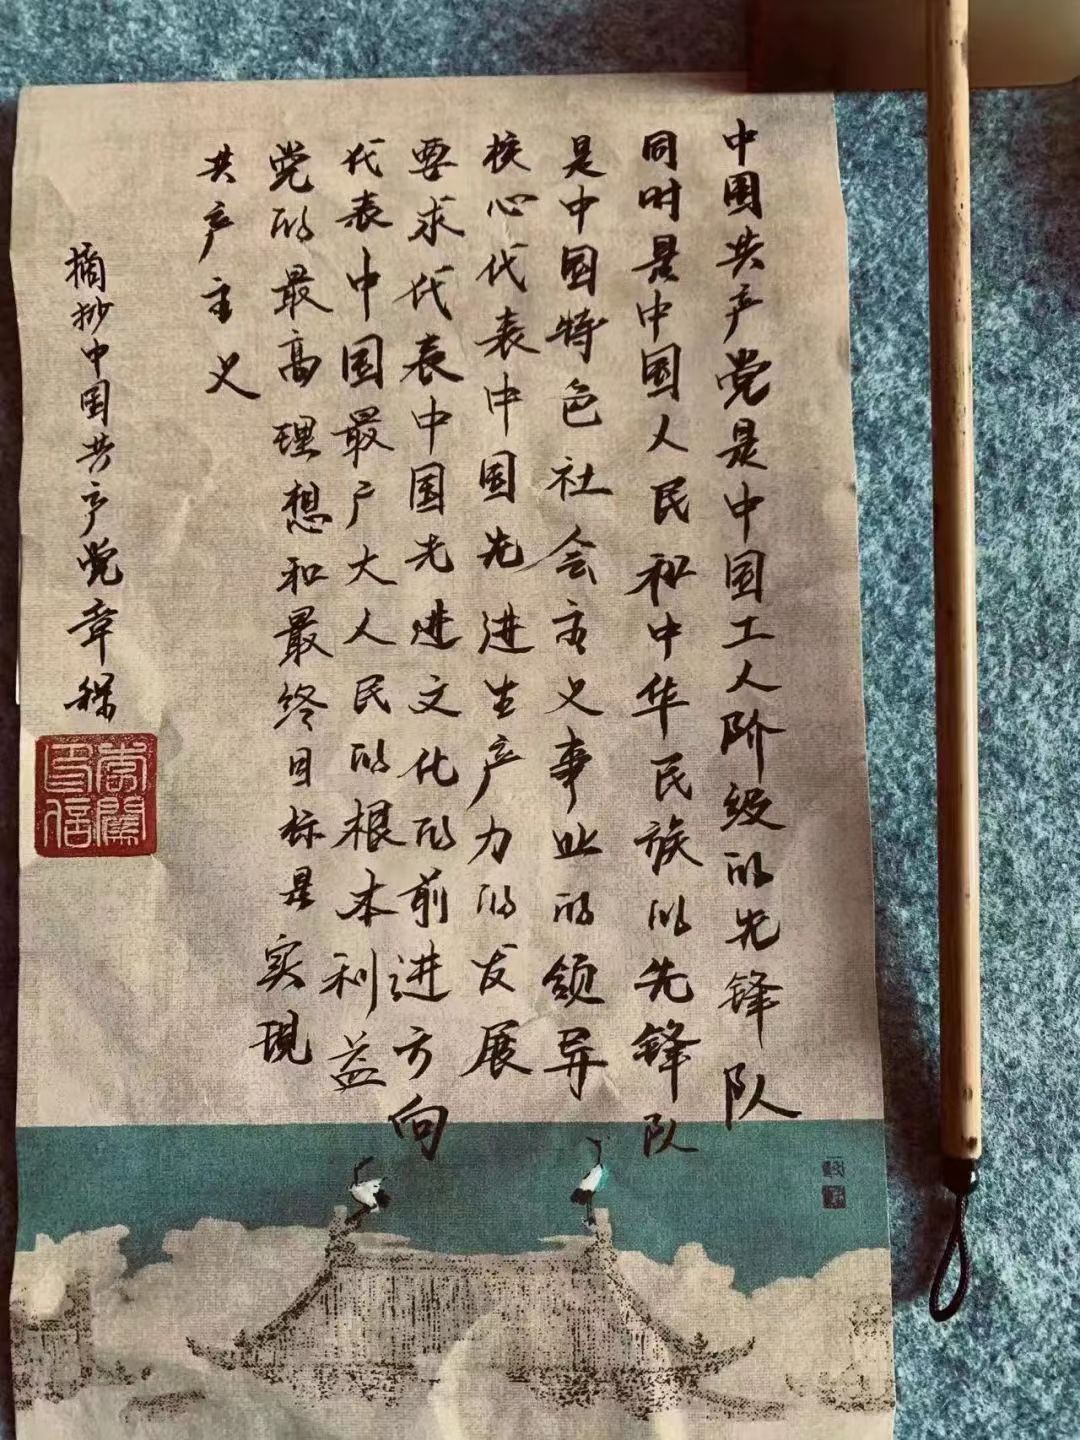 中国共产党是中国工人阶级的先锋队
同时是中国人民和中华民族的先锋队
是中国特色社会主义事业的领导
核心代表中国先进生产力的发展
要求代表中国先进文化的前进方向
代表中国最广大人民的根本利益
党的最高理想和最终目标是实现
共产主义
摘抄中国共产党章程